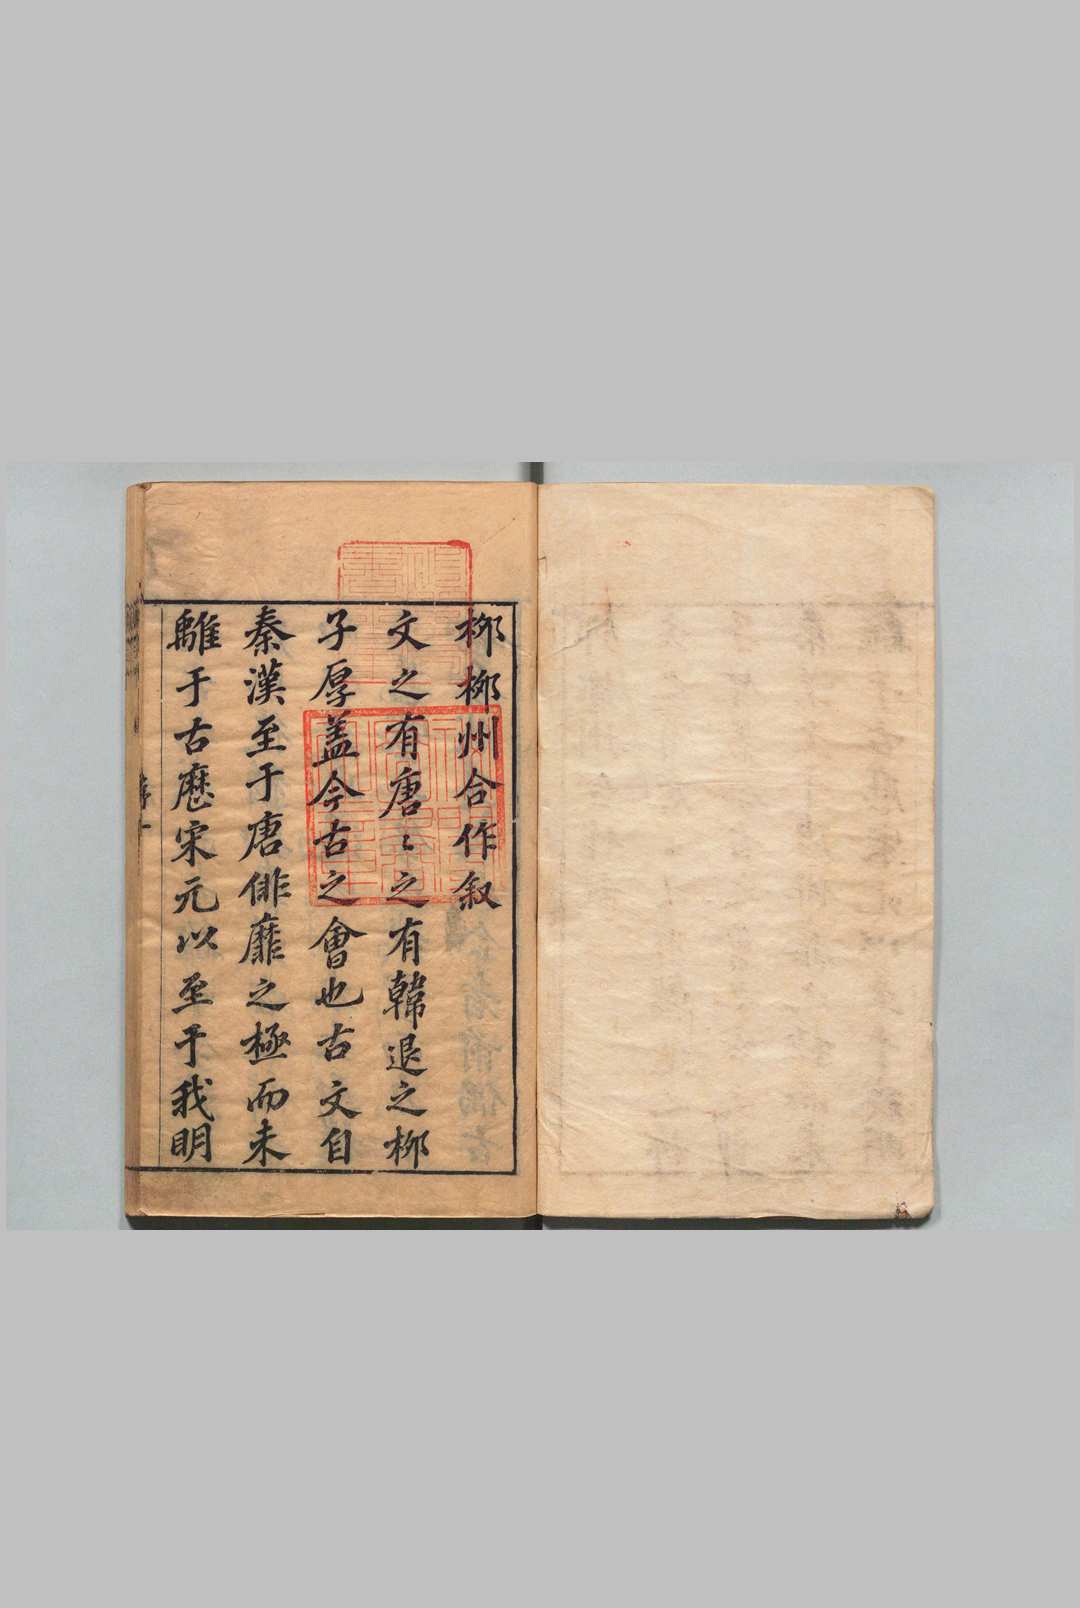 柳柳州合作叙
文之有唐〻之有韓退之柳
子厚蓋今古之會也古文自
秦漢至于唐俳靡之極而未
離于古歷宋元以至于我明
序一